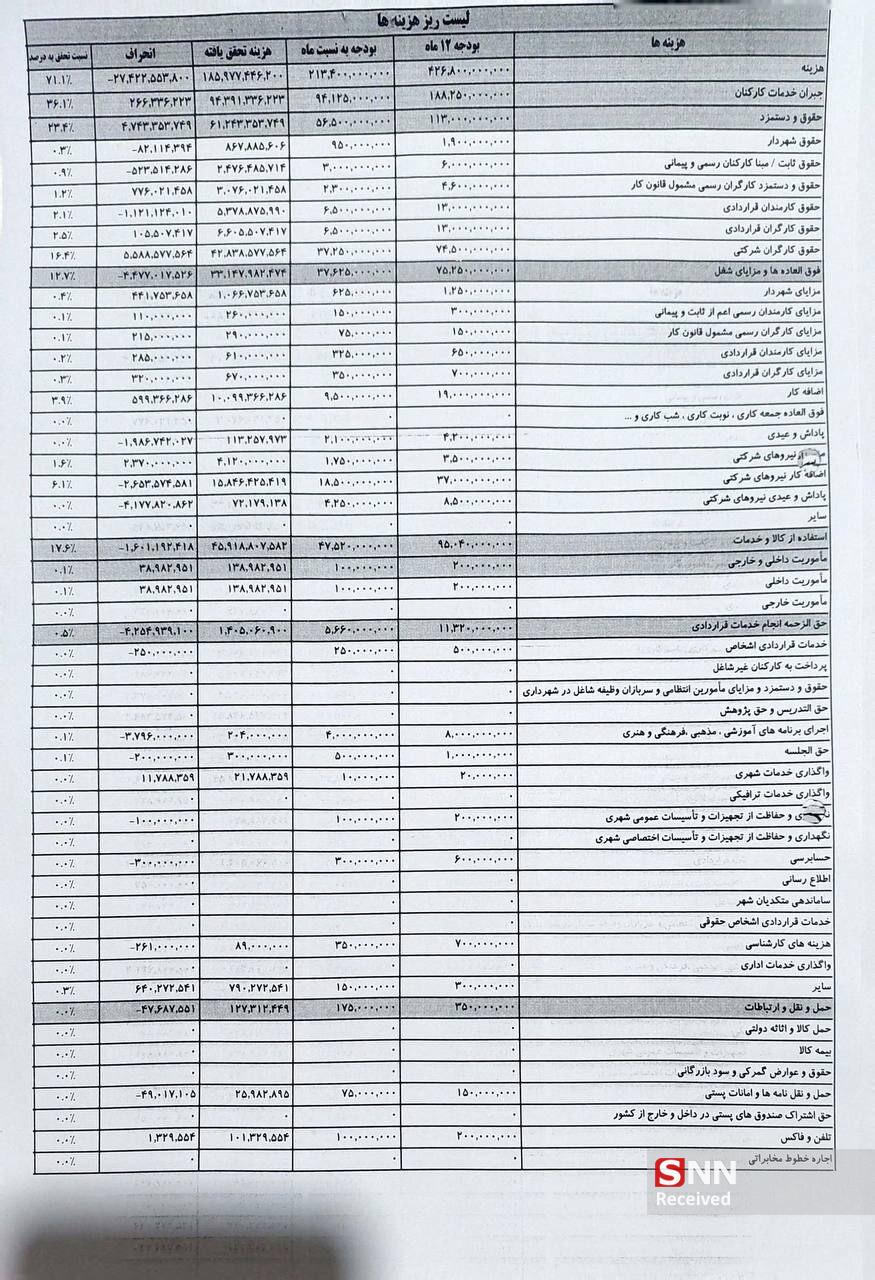 لیست ریز هزینه ها
هزینه ها | بودجه ۱۲ ماه | بودجه به نسبت ماه | هزینه تحقق یافته | انحراف | نسبت تحقق به درصد
هزینه | ۴۲۶,۸۰۰,۰۰۰,۰۰۰ | ۲۱۳,۴۰۰,۰۰۰,۰۰۰ | ۱۸۵,۹۷۷,۴۴۶,۲۰۰ | -۲۷,۴۲۲,۵۵۳,۸۰۰ | ۷۱.۱٪
جبران خدمات کارکنان | ۱۸۸,۲۵۰,۰۰۰,۰۰۰ | ۹۴,۱۲۵,۰۰۰,۰۰۰ | ۹۴,۳۹۱,۳۳۶,۲۲۳ | ۲۶۶,۳۳۶,۲۲۳ | ۳۶.۱٪
حقوق و دستمزد | ۱۱۳,۰۰۰,۰۰۰,۰۰۰ | ۵۶,۵۰۰,۰۰۰,۰۰۰ | ۶۱,۲۴۳,۳۵۳,۷۴۹ | ۴,۷۴۳,۳۵۳,۷۴۹ | ۲۳.۴٪
حقوق شهردار | ۱,۹۰۰,۰۰۰,۰۰۰ | ۹۵۰,۰۰۰,۰۰۰ | ۸۶۷,۸۸۵,۶۰۶ | -۸۲,۱۱۴,۳۹۴ | ۰.۳٪
حقوق ثابت / مبنا کارکنان رسمی و پیمانی | ۶,۰۰۰,۰۰۰,۰۰۰ | ۳,۰۰۰,۰۰۰,۰۰۰ | ۲,۴۷۶,۴۸۵,۷۱۴ | -۵۲۳,۵۱۴,۲۸۶ | ۰.۹٪
حقوق و دستمزد کارگران رسمی مشمول قانون کار | ۴,۶۰۰,۰۰۰,۰۰۰ | ۲,۳۰۰,۰۰۰,۰۰۰ | ۳,۰۷۶,۰۲۱,۴۵۸ | ۷۷۶,۰۲۱,۴۵۸ | ۱.۲٪
حقوق کارمندان قراردادی | ۱۳,۰۰۰,۰۰۰,۰۰۰ | ۶,۵۰۰,۰۰۰,۰۰۰ | ۵,۳۷۸,۸۷۵,۹۹۰ | -۱,۱۲۱,۱۲۴,۰۱۰ | ۲.۱٪
حقوق کارگران قراردادی | ۱۳,۰۰۰,۰۰۰,۰۰۰ | ۶,۵۰۰,۰۰۰,۰۰۰ | ۶,۶۰۵,۵۰۷,۴۱۷ | ۱۰۵,۵۰۷,۴۱۷ | ۲.۵٪
حقوق کارگران شرکتی | ۷۴,۵۰۰,۰۰۰,۰۰۰ | ۳۷,۲۵۰,۰۰۰,۰۰۰ | ۴۲,۸۳۸,۵۷۷,۵۶۴ | ۵,۵۸۸,۵۷۷,۵۶۴ | ۱۶.۴٪
فوق العاده ها و مزایای شغل | ۷۵,۲۵۰,۰۰۰,۰۰۰ | ۳۷,۶۲۵,۰۰۰,۰۰۰ | ۳۳,۱۴۷,۹۸۲,۴۷۴ | -۴,۴۷۷,۰۱۷,۵۲۶ | ۱۲.۷٪
مزایای شهردار | ۱,۲۵۰,۰۰۰,۰۰۰ | ۶۲۵,۰۰۰,۰۰۰ | ۱,۰۶۶,۷۵۳,۶۵۸ | ۴۴۱,۷۵۳,۶۵۸ | ۰.۴٪
مزایای کارمندان رسمی اعم از ثابت و پیمانی | ۳۰۰,۰۰۰,۰۰۰ | ۱۵۰,۰۰۰,۰۰۰ | ۲۶۰,۰۰۰,۰۰۰ | ۱۱۰,۰۰۰,۰۰۰ | ۰.۱٪
مزایای کارگران رسمی مشمول قانون کار | ۱۵۰,۰۰۰,۰۰۰ | ۷۵,۰۰۰,۰۰۰ | ۲۹۰,۰۰۰,۰۰۰ | ۲۱۵,۰۰۰,۰۰۰ | ۰.۱٪
مزایای کارمندان قراردادی | ۶۵۰,۰۰۰,۰۰۰ | ۳۲۵,۰۰۰,۰۰۰ | ۶۱۰,۰۰۰,۰۰۰ | ۲۸۵,۰۰۰,۰۰۰ | ۰.۲٪
مزایای کارگران قراردادی | ۷۰۰,۰۰۰,۰۰۰ | ۳۵۰,۰۰۰,۰۰۰ | ۶۷۰,۰۰۰,۰۰۰ | ۳۲۰,۰۰۰,۰۰۰ | ۰.۳٪
اضافه کار | ۱۹,۰۰۰,۰۰۰,۰۰۰ | ۹,۵۰۰,۰۰۰,۰۰۰ | ۱۰,۰۹۹,۳۶۶,۲۸۶ | ۵۹۹,۳۶۶,۲۸۶ | ۳.۹٪
فوق العاده جمعه کاری ، نوبت کاری ، شب کاری و ... | ۰ | ۰ | ۰ | ۰ | ۰.۰٪
پاداش و عیدی | ۴,۲۰۰,۰۰۰,۰۰۰ | ۲,۱۰۰,۰۰۰,۰۰۰ | ۱۱۳,۲۵۷,۹۷۳ | -۱,۹۸۶,۷۴۲,۰۲۷ | ۰.۰٪
نیروهای شرکتی | ۳,۵۰۰,۰۰۰,۰۰۰ | ۱,۷۵۰,۰۰۰,۰۰۰ | ۴,۱۲۰,۰۰۰,۰۰۰ | ۲,۳۷۰,۰۰۰,۰۰۰ | ۱.۶٪
اضافه کار نیروهای شرکتی | ۳۷,۰۰۰,۰۰۰,۰۰۰ | ۱۸,۵۰۰,۰۰۰,۰۰۰ | ۱۵,۸۴۶,۴۲۵,۴۱۹ | -۲,۶۵۳,۵۷۴,۵۸۱ | ۶.۱٪
پاداش و عیدی نیروهای شرکتی | ۸,۵۰۰,۰۰۰,۰۰۰ | ۴,۲۵۰,۰۰۰,۰۰۰ | ۷۲,۱۷۹,۱۳۸ | -۴,۱۷۷,۸۲۰,۸۶۲ | ۰.۰٪
سایر | ۰ | ۰ | ۰ | ۰ | ۰.۰٪
استفاده از کالا و خدمات | ۹۵,۰۴۰,۰۰۰,۰۰۰ | ۴۷,۵۲۰,۰۰۰,۰۰۰ | ۴۵,۹۱۸,۸۰۷,۵۸۲ | -۱,۶۰۱,۱۹۲,۴۱۸ | ۱۷.۶٪
مأموریت داخلی و خارجی | ۲۰۰,۰۰۰,۰۰۰ | ۱۰۰,۰۰۰,۰۰۰ | ۱۳۸,۹۸۲,۹۵۱ | ۳۸,۹۸۲,۹۵۱ | ۰.۱٪
مأموریت داخلی | ۲۰۰,۰۰۰,۰۰۰ | ۱۰۰,۰۰۰,۰۰۰ | ۱۳۸,۹۸۲,۹۵۱ | ۳۸,۹۸۲,۹۵۱ | ۰.۱٪
مأموریت خارجی | ۰ | ۰ | ۰ | ۰ | ۰.۰٪
حق الزحمه انجام خدمات قراردادی | ۱۱,۳۲۰,۰۰۰,۰۰۰ | ۵,۶۶۰,۰۰۰,۰۰۰ | ۱,۴۰۵,۰۶۰,۹۰۰ | -۴,۲۵۴,۹۳۹,۱۰۰ | ۰.۵٪
خدمات قراردادی اشخاص | ۵۰۰,۰۰۰,۰۰۰ | ۲۵۰,۰۰۰,۰۰۰ | ۰ | -۲۵۰,۰۰۰,۰۰۰ | ۰.۰٪
پرداخت به کارکنان غیرشاغل | ۰ | ۰ | ۰ | ۰ | ۰.۰٪
حقوق و دستمزد و مزایای مأمورین انتظامی و سربازان وظیفه شاغل در شهرداری | ۰ | ۰ | ۰ | ۰ | ۰.۰٪
حق التدریس و حق پژوهش | ۰ | ۰ | ۰ | ۰ | ۰.۰٪
اجرای برنامه های آموزشی ، مذهبی ،فرهنگی و هنری | ۸,۰۰۰,۰۰۰,۰۰۰ | ۴,۰۰۰,۰۰۰,۰۰۰ | ۲۰۴,۰۰۰,۰۰۰ | -۳,۷۹۶,۰۰۰,۰۰۰ | ۰.۱٪
حق الجلسه | ۱,۰۰۰,۰۰۰,۰۰۰ | ۵۰۰,۰۰۰,۰۰۰ | ۳۰۰,۰۰۰,۰۰۰ | -۲۰۰,۰۰۰,۰۰۰ | ۰.۱٪
واگذاری خدمات شهری | ۲۰,۰۰۰,۰۰۰ | ۱۰,۰۰۰,۰۰۰ | ۲۱,۷۸۸,۳۵۹ | ۱۱,۷۸۸,۳۵۹ | ۰.۰٪
واگذاری خدمات ترافیکی | ۰ | ۰ | ۰ | ۰ | ۰.۰٪
و حفاظت از تجهیزات و تأسیسات عمومی شهری | ۲۰۰,۰۰۰,۰۰۰ | ۱۰۰,۰۰۰,۰۰۰ | ۰ | -۱۰۰,۰۰۰,۰۰۰ | ۰.۰٪
نگهداری و حفاظت از تجهیزات و تأسیسات اختصاصی شهری | ۰ | ۰ | ۰ | ۰ | ۰.۰٪
حسابرسی | ۶۰۰,۰۰۰,۰۰۰ | ۳۰۰,۰۰۰,۰۰۰ | ۰ | -۳۰۰,۰۰۰,۰۰۰ | ۰.۰٪
اطلاع رسانی | ۰ | ۰ | ۰ | ۰ | ۰.۰٪
ساماندهی متکدیان شهر | ۰ | ۰ | ۰ | ۰ | ۰.۰٪
خدمات قراردادی اشخاص حقوقی | ۰ | ۰ | ۰ | ۰ | ۰.۰٪
هزینه های کارشناسی | ۷۰۰,۰۰۰,۰۰۰ | ۳۵۰,۰۰۰,۰۰۰ | ۸۹,۰۰۰,۰۰۰ | -۲۶۱,۰۰۰,۰۰۰ | ۰.۰٪
واگذاری خدمات اداری | ۰ | ۰ | ۰ | ۰ | ۰.۰٪
سایر | ۳۰۰,۰۰۰,۰۰۰ | ۱۵۰,۰۰۰,۰۰۰ | ۷۹۰,۲۷۲,۵۴۱ | ۶۴۰,۲۷۲,۵۴۱ | ۰.۳٪
حمل و نقل و ارتباطات | ۳۵۰,۰۰۰,۰۰۰ | ۱۷۵,۰۰۰,۰۰۰ | ۱۲۷,۳۱۲,۴۴۹ | -۴۷,۶۸۷,۵۵۱ | ۰.۰٪
حمل کالا و اثاثه دولتی | ۰ | ۰ | ۰ | ۰ | ۰.۰٪
بیمه کالا | ۰ | ۰ | ۰ | ۰ | ۰.۰٪
حقوق و عوارض گمرکی و سود بازرگانی | ۰ | ۰ | ۰ | ۰ | ۰.۰٪
حمل و نقل نامه ها و امانات پستی | ۱۵۰,۰۰۰,۰۰۰ | ۷۵,۰۰۰,۰۰۰ | ۲۵,۹۸۲,۸۹۵ | -۴۹,۰۱۷,۱۰۵ | ۰.۰٪
حق اشتراک صندوق های پستی در داخل و خارج از کشور | ۰ | ۰ | ۰ | ۰ | ۰.۰٪
تلفن و فاکس | ۲۰۰,۰۰۰,۰۰۰ | ۱۰۰,۰۰۰,۰۰۰ | ۱۰۱,۳۲۹,۵۵۴ | ۱,۳۲۹,۵۵۴ | ۰.۰٪
اجاره خطوط مخابراتی | ۰ | ۰ | ۰ | ۰ | ۰.۰٪
SNN
Received